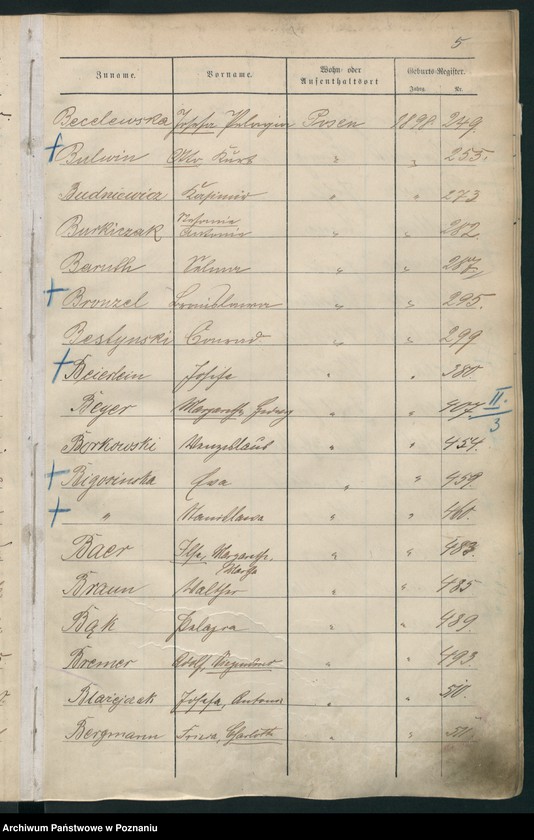 5
Zuname. Vorname. Wohn- oder Aufenthaltsort Geburts-Register.
Jahrg. Nr.
Becelewska Josefa Pelagia Posen 1899. 249.
Bulwin Otto Kurt " " 255.
Budniewicz Kasimir " " 273
Burkiczak Stefanie Antonie " " 282
Baruth Selma " " 287,
Bronzel Bronislawa " " 295.
Bestynski Conrad " " 299
Beierlein Josefa " " 380.
Beyer Margarethe Hedwig " " 407 II. 3
Borkowski Wenzeslaus " " 454.
Bigosinska Ewa " " 459
" Stanislawa " " 460.
Baer Ilse, Margarethe, Martha " " 483.
Braun Walther " " 485
Bąk Pelagia " " 489.
Bremer Adolf, Siegmund " " 493.
Blazejczak Josefa, Antonie " " 510.
Bergmann Frieda, Charlotte " "
Archiwum Państwowe w Poznaniu